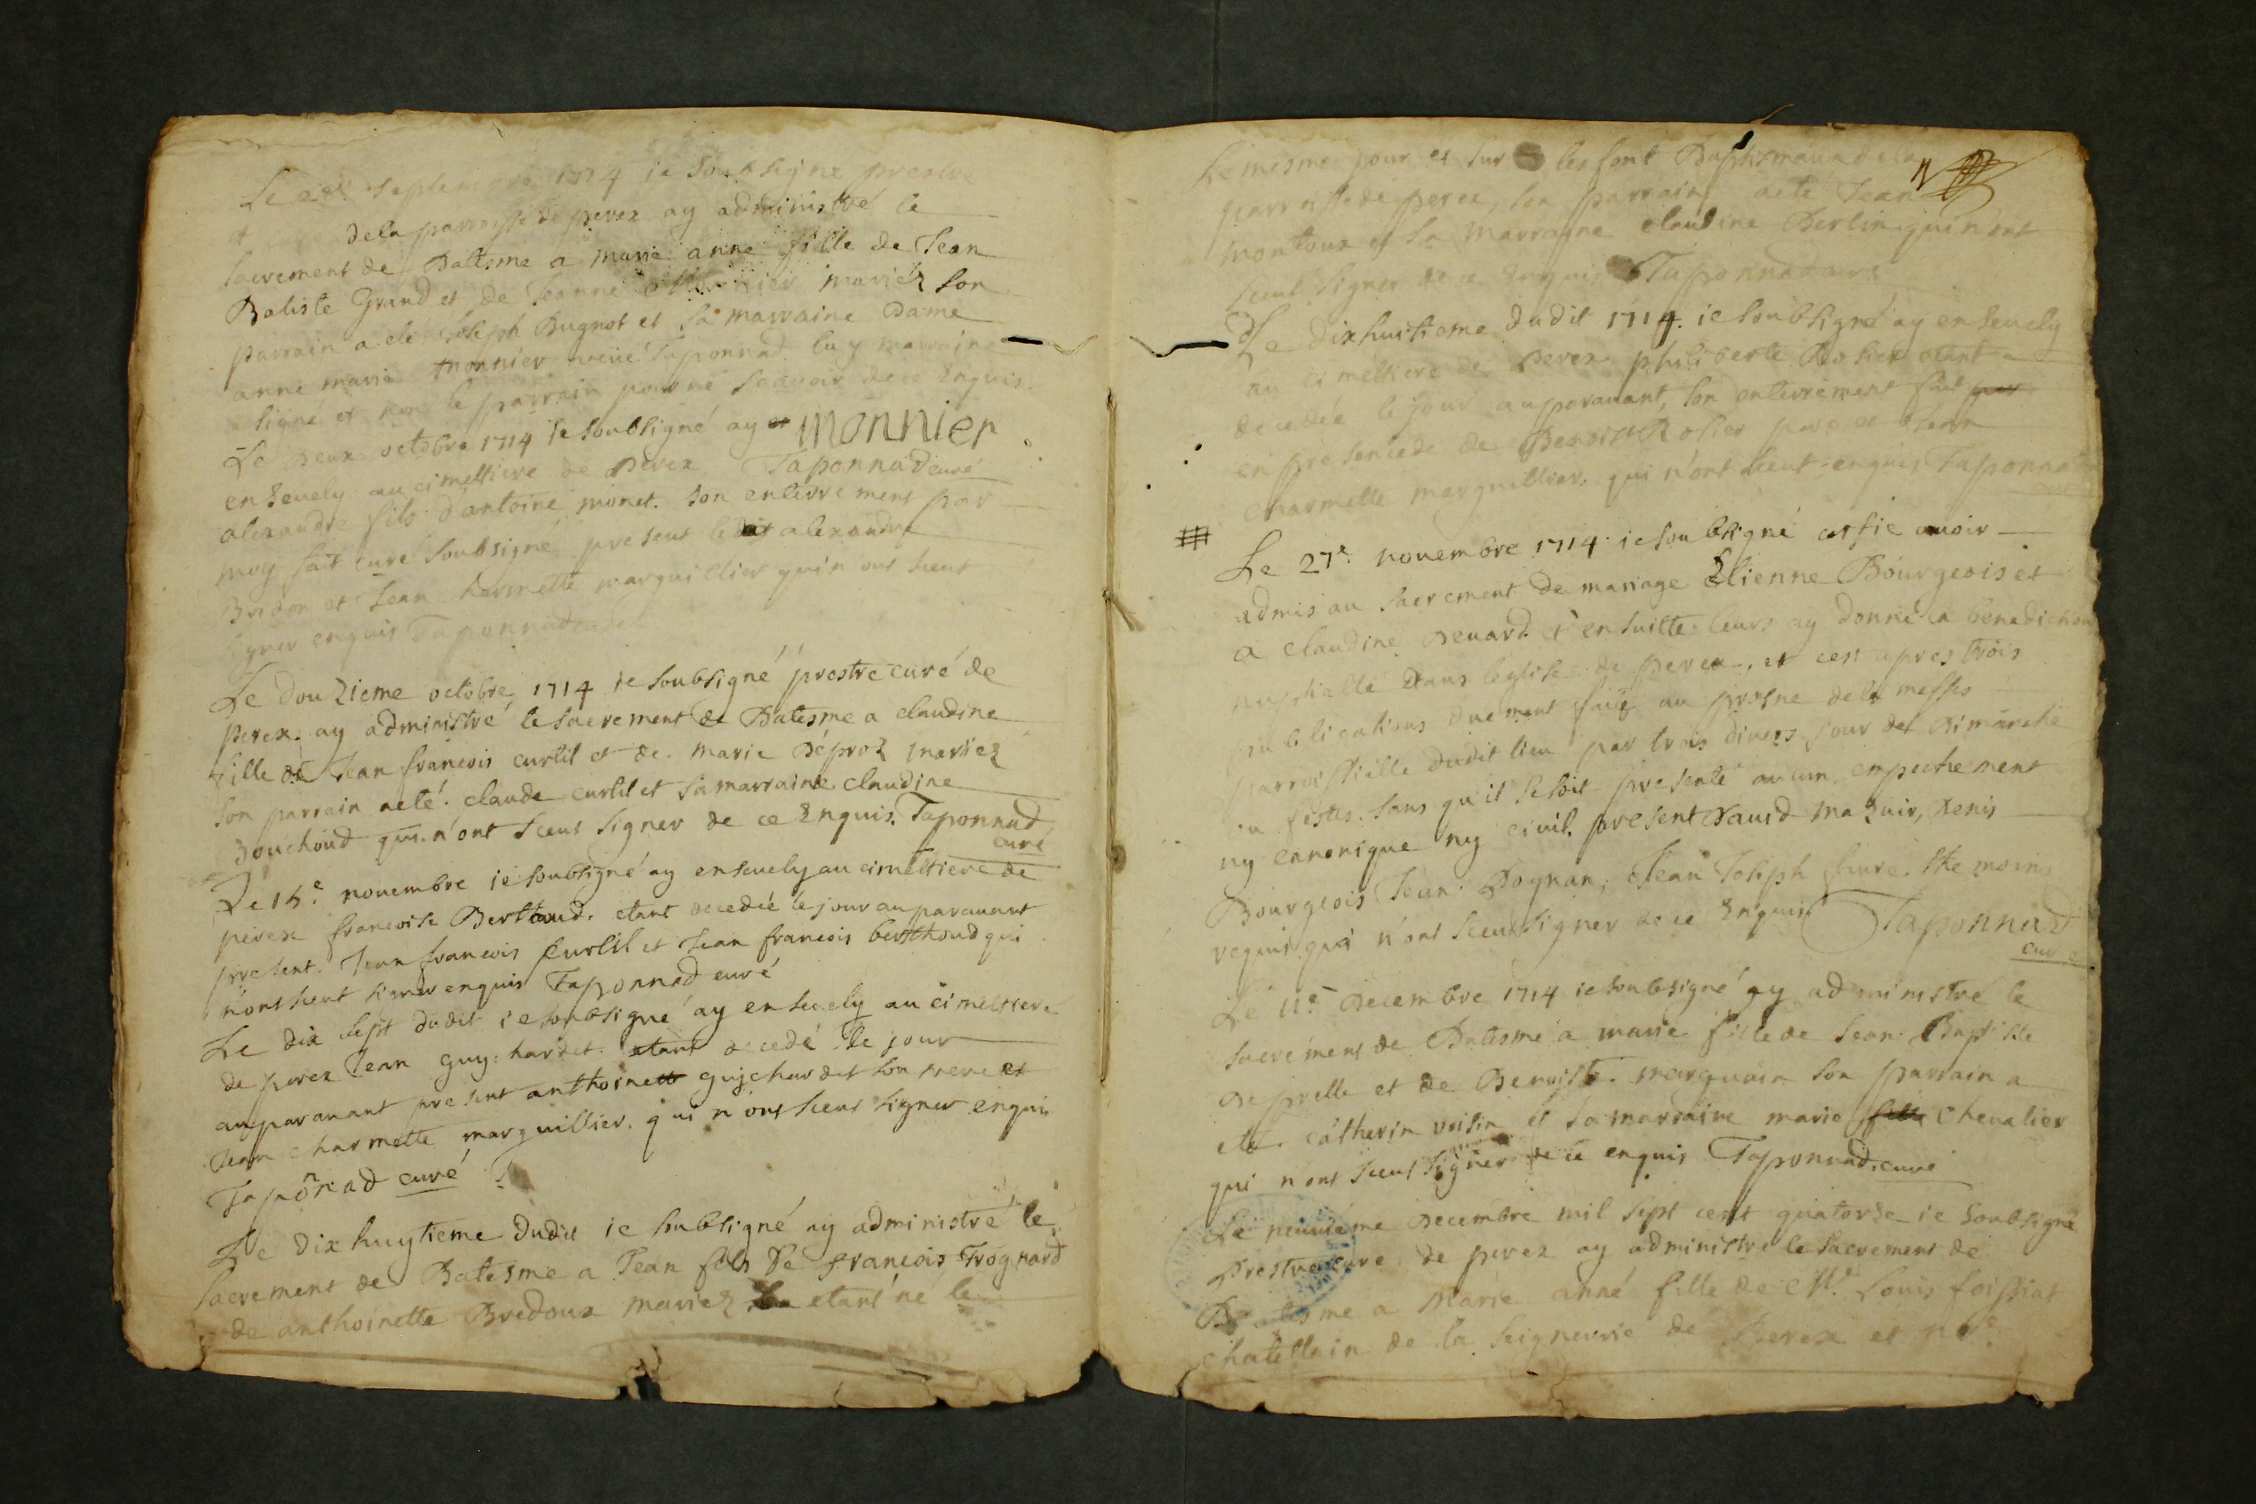 Le septembre 1714 ie Soubsigné prestre
et dela parroisse de perex ay administré le
sacrement de Batesme a marie anne fille de Jean
Batiste Grand et de Jeanne mariéz son
parrain a ete Joseph Bugnot et sa marraine Dame
anne marie monnier Taponnad la marraine
signé et non le parrain pour ne scavoir de ce Enquis
Le Deux octobre 1714 ie soubsigné ay et monnier
ensevely au cimettiere de perex Taponnad curé
alexandre fils d'antoine monet. son enterrement par
moy fait curé soubsigné present ledit alexandre
Bridon et Jean charmette marguillier qui n'ont sceut
signer enquis Taponnad curé
Le douzieme octobre 1714 ie soubsigné prestre curé de
perex. ay administré le sacrement de Batesme a claudine
fille de Jean françois curtil et de marie Déproz mariez
son parrain aeté. claude curtil et sa marraine claudine
Bouchoud qui n'ont sceut signer de ce Enquis. Taponnad
curé
Le 15.e novembre ie soubsigné ay ensevely au cimettiere de
perex françoise Berthoud. etant decedée le jour auparavant
present. Jean françois Curtil et Jean françois berthoud qui
n'ont sceut signer enquis Taponnad curé
Le dix sept dudit ie soubsigné ay ensevely au cimettiere
de perex Jean guy: hardet. etant decedé le jour
auparavant present anthoine guychardet son frere et
Jean charmette marguillier. qui n'ont sceut signer enquis
Taponad curé
Le dix huytieme Dudit ie soubsigné ay administré le
sacrement de Batesme a Jean fils de françois Trognard
de anthoinette Bredoux mariez etant né le
Le mesme jour et sur les font Baptismaux de la
parroisse de perex, son parrain aeté Jean
montoux et sa marraine claudine Berlin qui n'ont
sceut signer de ce Enquis Taponnad curé
Le dixhuitieme dudit 1714. ie soubsigné ay ensevely
au cimettiere de Perex philiberte Rolier etant
decedée le jour auparavant, son enterrement fait par
en presence de Benoist Rolier pere et Jean
charmette marguillier, qui n'ont sceut enquis Taponnad
Le 27e. novembre 1714. ie soubsigné certie avoir
admis au sacrement de mariage Etienne Bourgeois et
a claudine Devard et ensuitte leurs ay donné la benediction
nuptialle Dans leglise de perex, et cest apres trois
publications duement faite au prosne de la messe
parroissialle dudit lieu par trois divers jour de Dimanche
ou festes. sans qu'il se soit presenté aucun empechement
ny canonique ny civil. present David mazuir, Denis
Bourgeois Jean Pognan, Jean Joseph favre. themoins
requis qui n'ont sceut signer de ce Enquis Taponnad
curé
Le 11.e Decembre 1714 ie soubsigné ay administré le
sacrement de Batesme a marie fille de Jean Baptiste
Deprelle et de Benoiste marguain son parrain a
ete. catherin voisin et sa marraine marie fille chevalier
qui n'ont sceut signer de ce enquis Taponnad. curé
Le neuvieme Decembre mil sept cent quatorze ie soubsigné
Prestre curé de perex ay administré le sacrement de
Batesme a Marie anne fille de Mr. Louis foissiat
chatellain de la seigneurie de Perex et